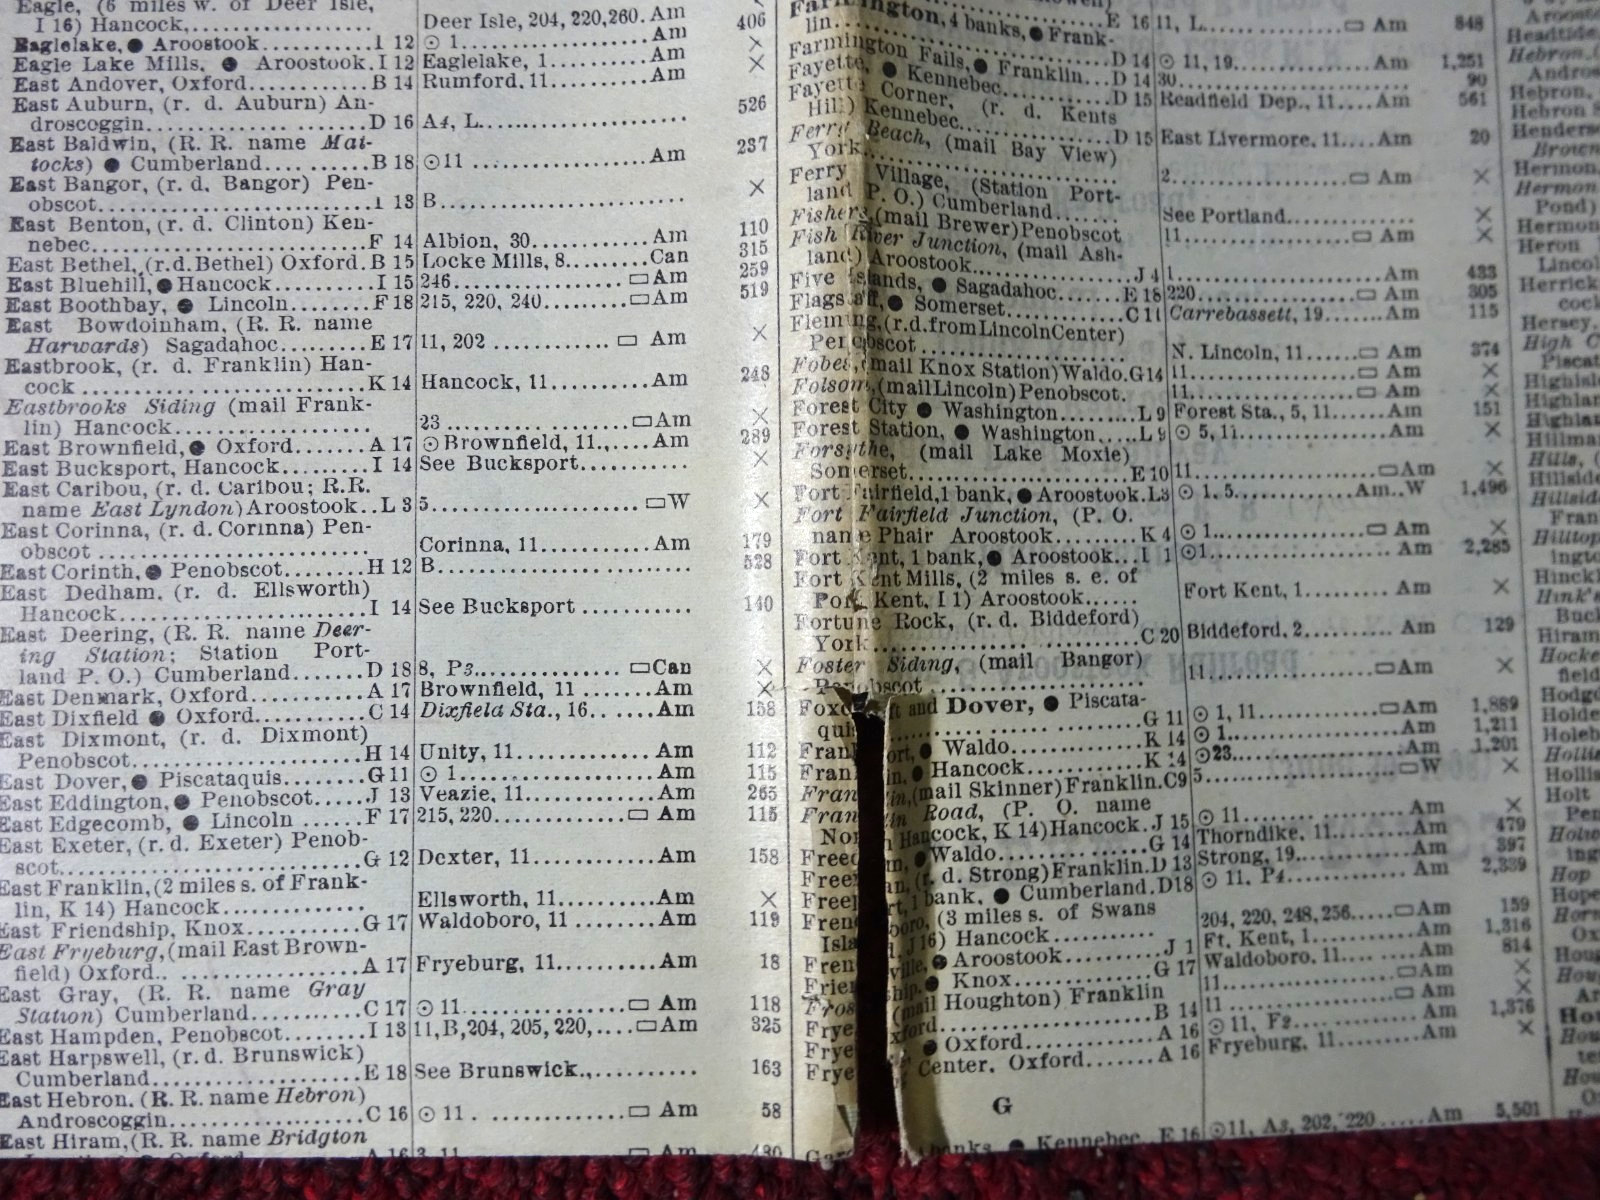 Eagle, (6 miles w. of Deer Isle,
I 16) Hancock,................. Deer Isle, 204, 220, 260. Am 406
Eaglelake, ● Aroostook............I 12 ⊙ 1.....................Am ×
Eagle Lake Mills, ● Aroostook.I 12 Eaglelake, 1.............Am ×
East Andover, Oxford............B 14 Rumford, 11.............Am
East Auburn, (r. d. Auburn) An-
droscoggin.................D 16 A4, L..................... 526
East Baldwin, (R. R. name Mat-
tocks) ● Cumberland....B 18 ⊙11 .................Am 237
East Bangor, (r. d. Bangor) Pen-
obscot.........................I 13 B......................... ×
East Benton, (r. d. Clinton) Ken-
nebec.........................F 14 Albion, 30............Am 110
East Bethel, (r.d.Bethel) Oxford.B 15 Locke Mills, 8........Can 315
East Bluehill, ● Hancock..........I 15 246..................▭Am 259
East Boothbay, ● Lincoln........F 18 215, 220, 240.........▭Am 519
East Bowdoinham, (R. R. name
Harwards) Sagadahoc..........E 17 11, 202 ............▭ Am ×
Eastbrook, (r. d. Franklin) Han-
cock ..........................K 14 Hancock, 11............Am 248
Eastbrooks Siding (mail Frank-
lin) Hancock.................... 23 .................▭Am ×
East Brownfield, ● Oxford.......A 17 ⊙Brownfield, 11.,....Am 289
East Bucksport, Hancock.........I 14 See Bucksport........... ×
East Caribou, (r. d. Caribou; R.R.
name East Lyndon) Aroostook..L 3 5....................▭W ×
East Corinna, (r. d. Corinna) Pen-
obscot ........................ Corinna, 11............Am 179
East Corinth, ● Penobscot........H 12 B......................... 528
East Dedham, (r. d. Ellsworth)
Hancock.......................I 14 See Bucksport ........... 140
East Deering, (R. R. name Deer-
ing Station; Station Port-
land P. O.) Cumberland........D 18 8, P3...............▭Can ×
East Denmark, Oxford............A 17 Brownfield, 11 .......Am ×
East Dixfield ● Oxford..........C 14 Dixfield Sta., 16......Am 158
East Dixmont, (r. d. Dixmont)
Penobscot.....................H 14 Unity, 11..............Am 112
East Dover, ● Piscataquis........G 11 ⊙ 1...................Am 115
East Eddington, ● Penobscot.....J 13 Veazie, 11.............Am 265
East Edgecomb, ● Lincoln ......F 17 215, 220............▭ Am 115
East Exeter, (r. d. Exeter) Penob-
scot..........................G 12 Dexter, 11.............Am 158
East Franklin, (2 miles s. of Frank-
lin, K 14) Hancock............. Ellsworth, 11..........Am ×
East Friendship, Knox...........G 17 Waldoboro, 11 .........Am 119
East Fryeburg, (mail East Brown-
field) Oxford.. ...............A 17 Fryeburg, 11...........Am 18
East Gray, (R. R. name Gray
Station) Cumberland...........C 17 ⊙ 11................▭ Am 118
East Hampden, Penobscot.........I 13 11, B, 204, 205, 220,....▭Am 325
East Harpswell, (r. d. Brunswick)
Cumberland....................E 18 See Brunswick.,......... 163
East Hebron, (R. R. name Hebron)
Androscoggin..................C 16 ⊙ 11 ..............▭ Am 58
East Hiram, (R. R. name Bridgton
A 16 3, 11 Am 480
Farmington, 4 banks, ● Frank-
lin..........................E 16 11, L..............▭ Am 848
Farmington Falls, ● Franklin...D 14 ⊙ 11, 19..............Am 1,251
Fayette, ● Kennebec............D 14 30..................... 90
Fayette Corner, (r. d. Kents
Hill) Kennebec................D 15 Readfield Dep., 11....Am 561
Ferry Beach, (mail Bay View)
York..........................D 15 East Livermore, 11....Am 20
Ferry Village, (Station Port- 2..................▭ Am ×
land P. O.) Cumberland....... See Portland............ ×
Fishers, (mail Brewer) Penobscot 11.................▭ Am ×
Fish River Junction, (mail Ash-
land) Aroostook................J 4 1.....................Am 433
Five Islands, ● Sagadahoc......E 18 220...............▭ Am 305
Flagstaff, ● Somerset..........C 11 Carrebassett, 19.......Am 115
Fleming, (r.d. from Lincoln Center)
Penobscot ................... N. Lincoln, 11......▭ Am 374
Fobes, (mail Knox Station) Waldo.G 14 11................▭ Am ×
Folsom, (mail Lincoln) Penobscot. 11..................▭ Am ×
Forest City ● Washington........L 9 Forest Sta., 5, 11.....Am 151
Forest Station, ● Washington....L 9 ⊙ 5, 11................Am ×
Forsythe, (mail Lake Moxie)
Somerset......................E 10 11..................▭Am ×
Fort Fairfield, 1 bank, ● Aroostook.L3 ⊙ 1, 5..............Am..W 1,496
Fort Fairfield Junction, (P. O.
name Phair Aroostook.........K 4 ⊙ 1................▭ Am ×
Fort Kent, 1 bank, ● Aroostook...I 1 ⊙1....................Am 2,285
Fort Kent Mills, (2 miles s. e. of
Fort Kent, I 1) Aroostook...... Fort Kent, 1..........Am ×
Fortune Rock, (r. d. Biddeford)
York..........................C 20 Biddeford, 2..........Am 129
Foster Siding, (mail Bangor)
Penobscot ................... 11..................▭Am ×
Foxcroft and Dover, ● Piscata-
quis..........................G 11 ⊙ 1, 11...........▭Am 1,889
Frankfort, ● Waldo.............K 14 ⊙ 1...................Am 1,211
Franklin, ● Hancock............K 14 ⊙23...................Am 1,201
Franklin, (mail Skinner) Franklin.C9 5..................▭W ×
Franklin Road, (P. O. name
North Hancock, K 14) Hancock.J 15 ⊙ 11................Am ×
Freedom, ● Waldo..............G 14 Thorndike, 11........Am 479
Freeman, (r. d. Strong) Franklin.D 13 Strong, 19............Am 397
Freeport, 1 bank, ● Cumberland.D18 ⊙ 11, P4.............Am 2,339
Frenchboro, (3 miles s. of Swans
Island, J 16) Hancock........... 204, 220, 248, 256.....▭Am 159
Frenchville, ● Aroostook........J 1 Ft. Kent, 1............Am 1,316
Friendship, ● Knox.............G 17 Waldoboro, 11.........Am 814
(mail Houghton) Franklin 11................▭Am ×
B 14 11................▭ Am ×
● Oxford..............A 16 ⊙11, F2..............Am 1,376
Center, Oxford.......A 16 Fryeburg, 11..........Am ×
G
banks, ● Kennebec. E 16 ⊙11, A3, 202, 220 .....Am 5,501
Headtide
Hebron,
Andros
Hebron,
Hebron S
Henders
Brown
Hermon,
Hermon
Pond)
Hermon
Heron
Lincol
Herrick
cock
Hersey,
High C
Piscat
Highlan
Highlan
Hillman
Hills, (
Hillside
Hillside
Fran
Hilltop
ingto
Hinckl
Hink's
Buck
Hiram
Hocke
field
Hodgd
Holde
Holeb
Hollis
Hollis
Holt
Pen
ing
Hop
Hope
Horn
Ox
Houg
Houg
Ar
Hou
Hou
te
Hou